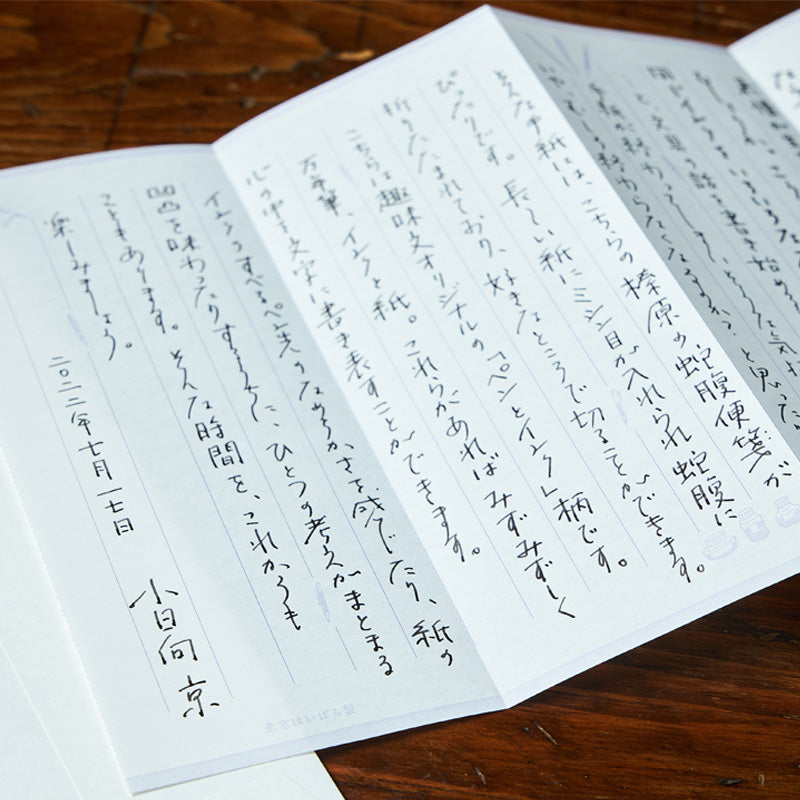 同じインクをいろいろな
と、文具の話を書き始め
手紙が終わってしまう
終わらなくなるかな?と思った
そんな手紙には、こちらの榛原の蛇腹便箋が
ぴったりです。長〜い紙にミシン目が入れられ蛇腹に
折りたたまれており、好きなところで切ることができます。
こちらは趣味文オリジナルの「ペンとインク」柄です。
万年筆、インクと紙。これらがあればみずみずしく
心の中を文字に書き表すことができます。
インクのすべるペン先のなめらかさを感じたり、紙の
凹凸を味わったりするように、ひとつの考えがまとまる
こともあります。そんな時間を、これからも
楽しみましょう。
二〇二二年七月一七日
小日向 京
東京はいばら製